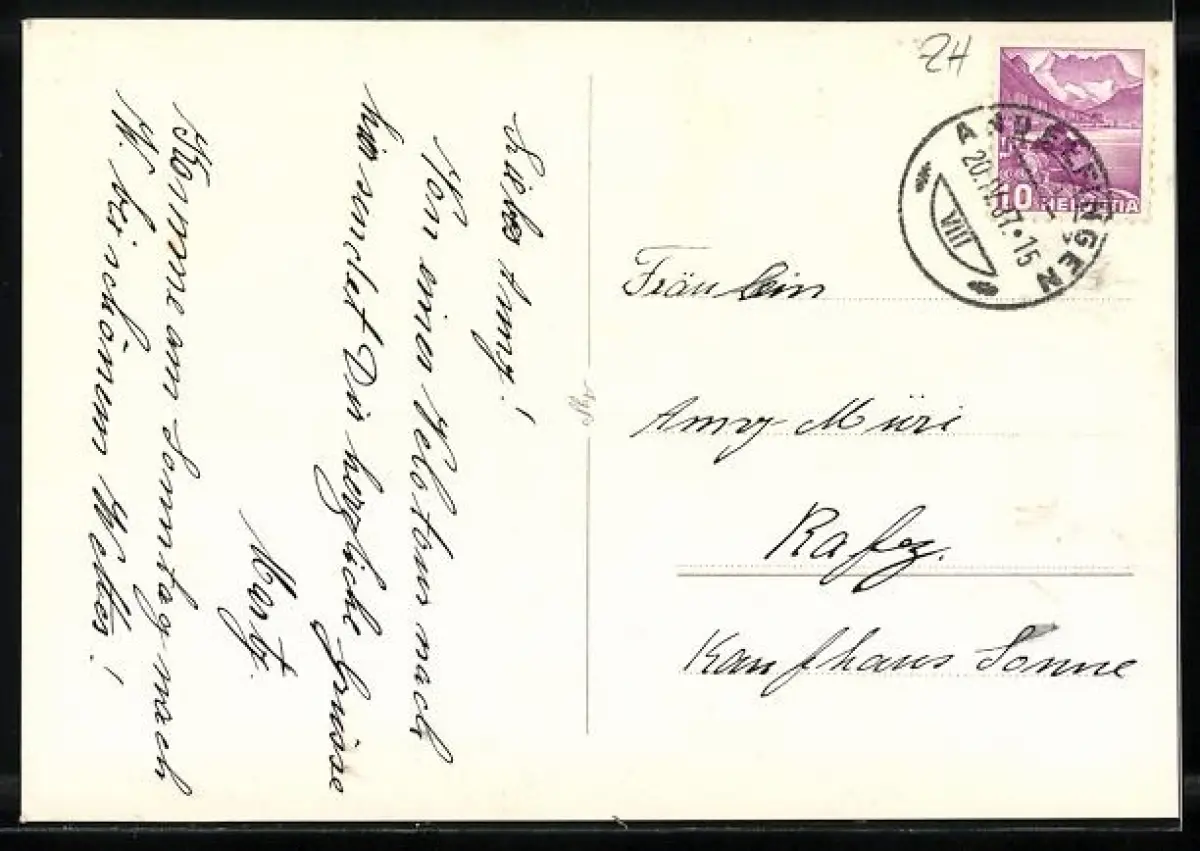 Liebes Anny!
Von einer Velotour nach
hier sendet Dir herzliche Grüsse
Komme am Sonntag nach
W. bei schönem Wetter!
ZH
ANDELFINGEN
20.IV.37.15
VIII
10 HELVETIA
Fräulein
Anny Müri
Rafz.
Kaufhaus Sonne